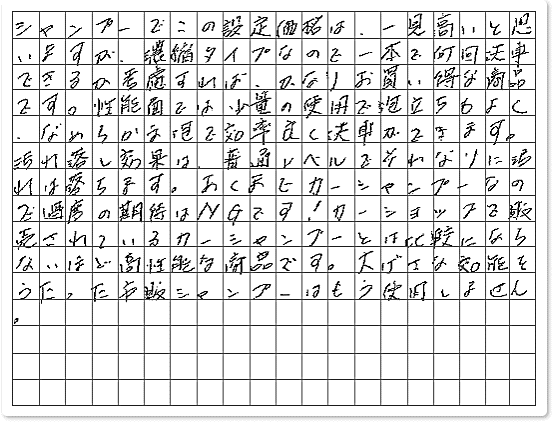 シャンプーでこの設定価格は、一見高いと思
いますが、濃縮タイプなので一本で何回洗車
できるか考慮すれば、かなりお買い得な商品
です。性能面では少量の使用で泡立ちもよく
、なめらかな泡で効率良く洗車ができます。
汚れ落し効果は、普通レベルでそれなりに汚
れは落ちます。あくまでカーシャンプーなの
で過度の期待はNGです！カーショップで販
売されているカーシャンプーとは比較になら
ないほど高性能な商品です。大げさな効能を
うたった市販シャンプーはもう使用しません
。